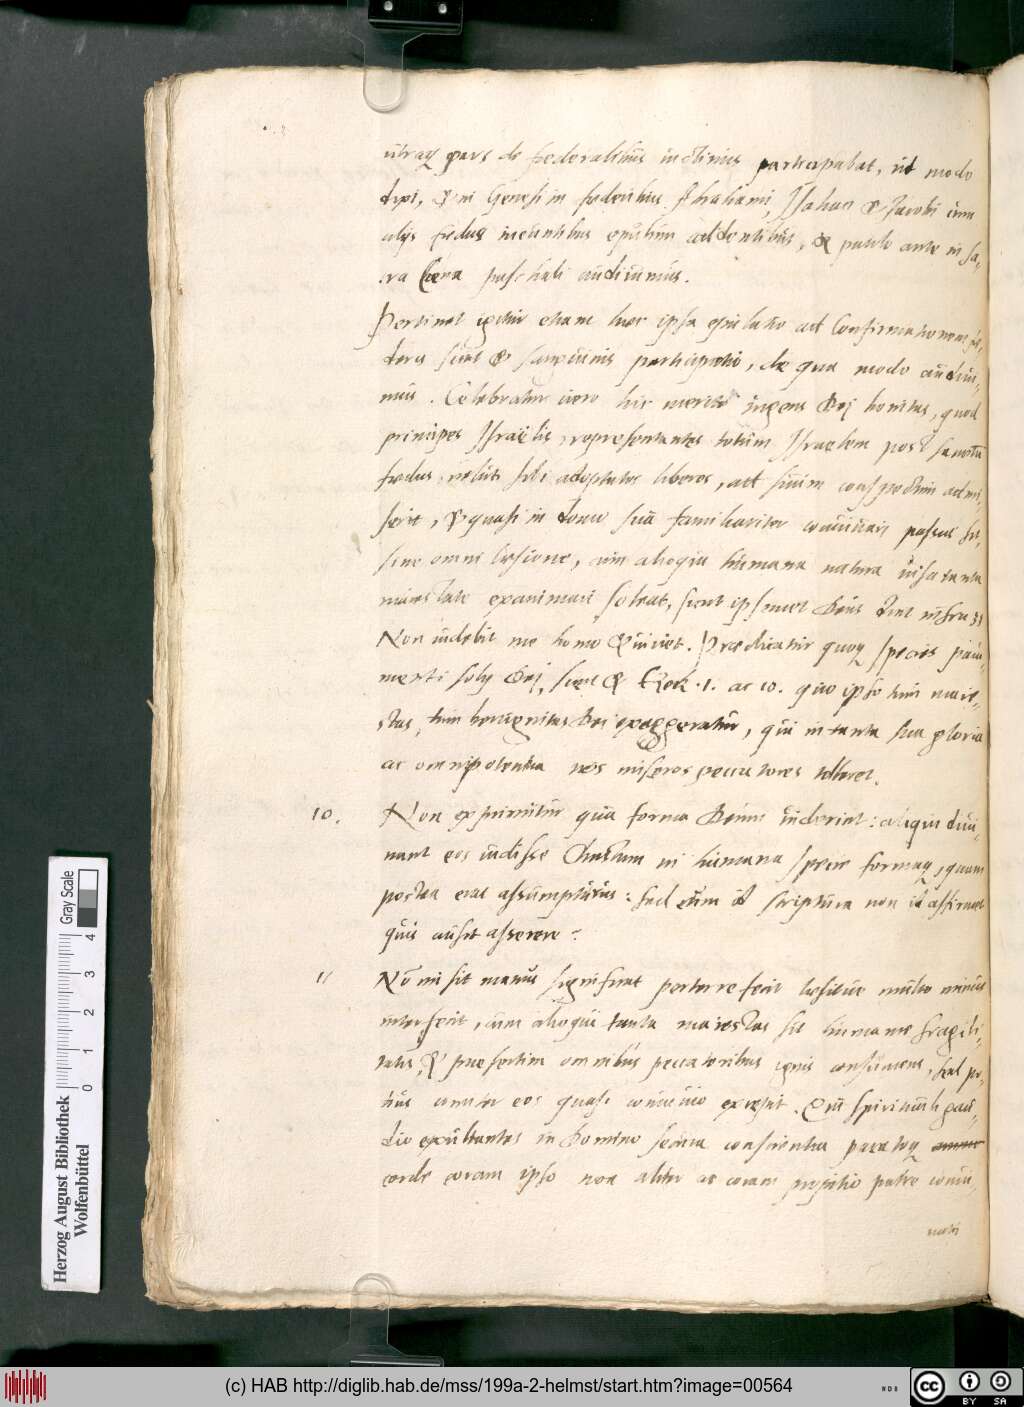 utraq pars de foederalibus inclinius participabat, ut modo
dixi, & in Genesi in foederibus Abrahami, Isahac & Jacobi cum
alijs foedus ineuntibus epulum addentibus, & paulo ante in sa-
cra Coena paschali audiuimus.
Pertinet igitur etiam haec ipsa epulatio ad Confirmationem foe-
deris sicut & sanguinis participatio, de qua modo audiui-
mus. Celebratur uero hic merito ingens Dei bonitas, quod
principes Israëlis, representantes totum Israelem post sancitu
foedus, uelut sibi adoptatos liberos, ad suum conspectum admi-
serit, & quasi in domo sua familiariter conuiuari passus sit,
sine omni laesione, cum alioqui humana natura uisa tanta
maiestate exanimari soleat, sicut ipsemet Deus dicit infra 33
Non uidebit me homo & uiuet. Praedicatur quoq species paui-
menti solij Dei, sicut & Ezech. 1. ac 10. quo ipso tum maie-
stas, tum benignitas Dei exaggeratur, qui in tanta sua gloria
ac omnipotentia nos miseros peccatores tolleret.
10. Non exprimitur qua forma Deum uiderint: aliqui diui-
nant eos uidisse Christum in humana specie formaq, quam
postea erat assumpturus: sed cum id scriptura non id affirmet
quis ausit asserere?
11 No misit manus significat perterrefecit laesitue multo minus
interfecit, cum alioqui tanta maiestas sit humanae fragili-
tatis, & praesertim omnibus peccatoribus ignis consumens, sed po-
tius amanter eos quasi conuiuio excepit. Qui spirituali gau-
dio exultantes in Domino secura conscientia pacatoq
corde coram ipso non aliter ac coram propitio patre conui-
uati
Herzog August Bibliothek
Wolfenbüttel
Gray Scale
0 1 2 3 4
(c) HAB http://diglib.hab.de/mss/199a-2-helmst/start.htm?image=00564
cc BY SA